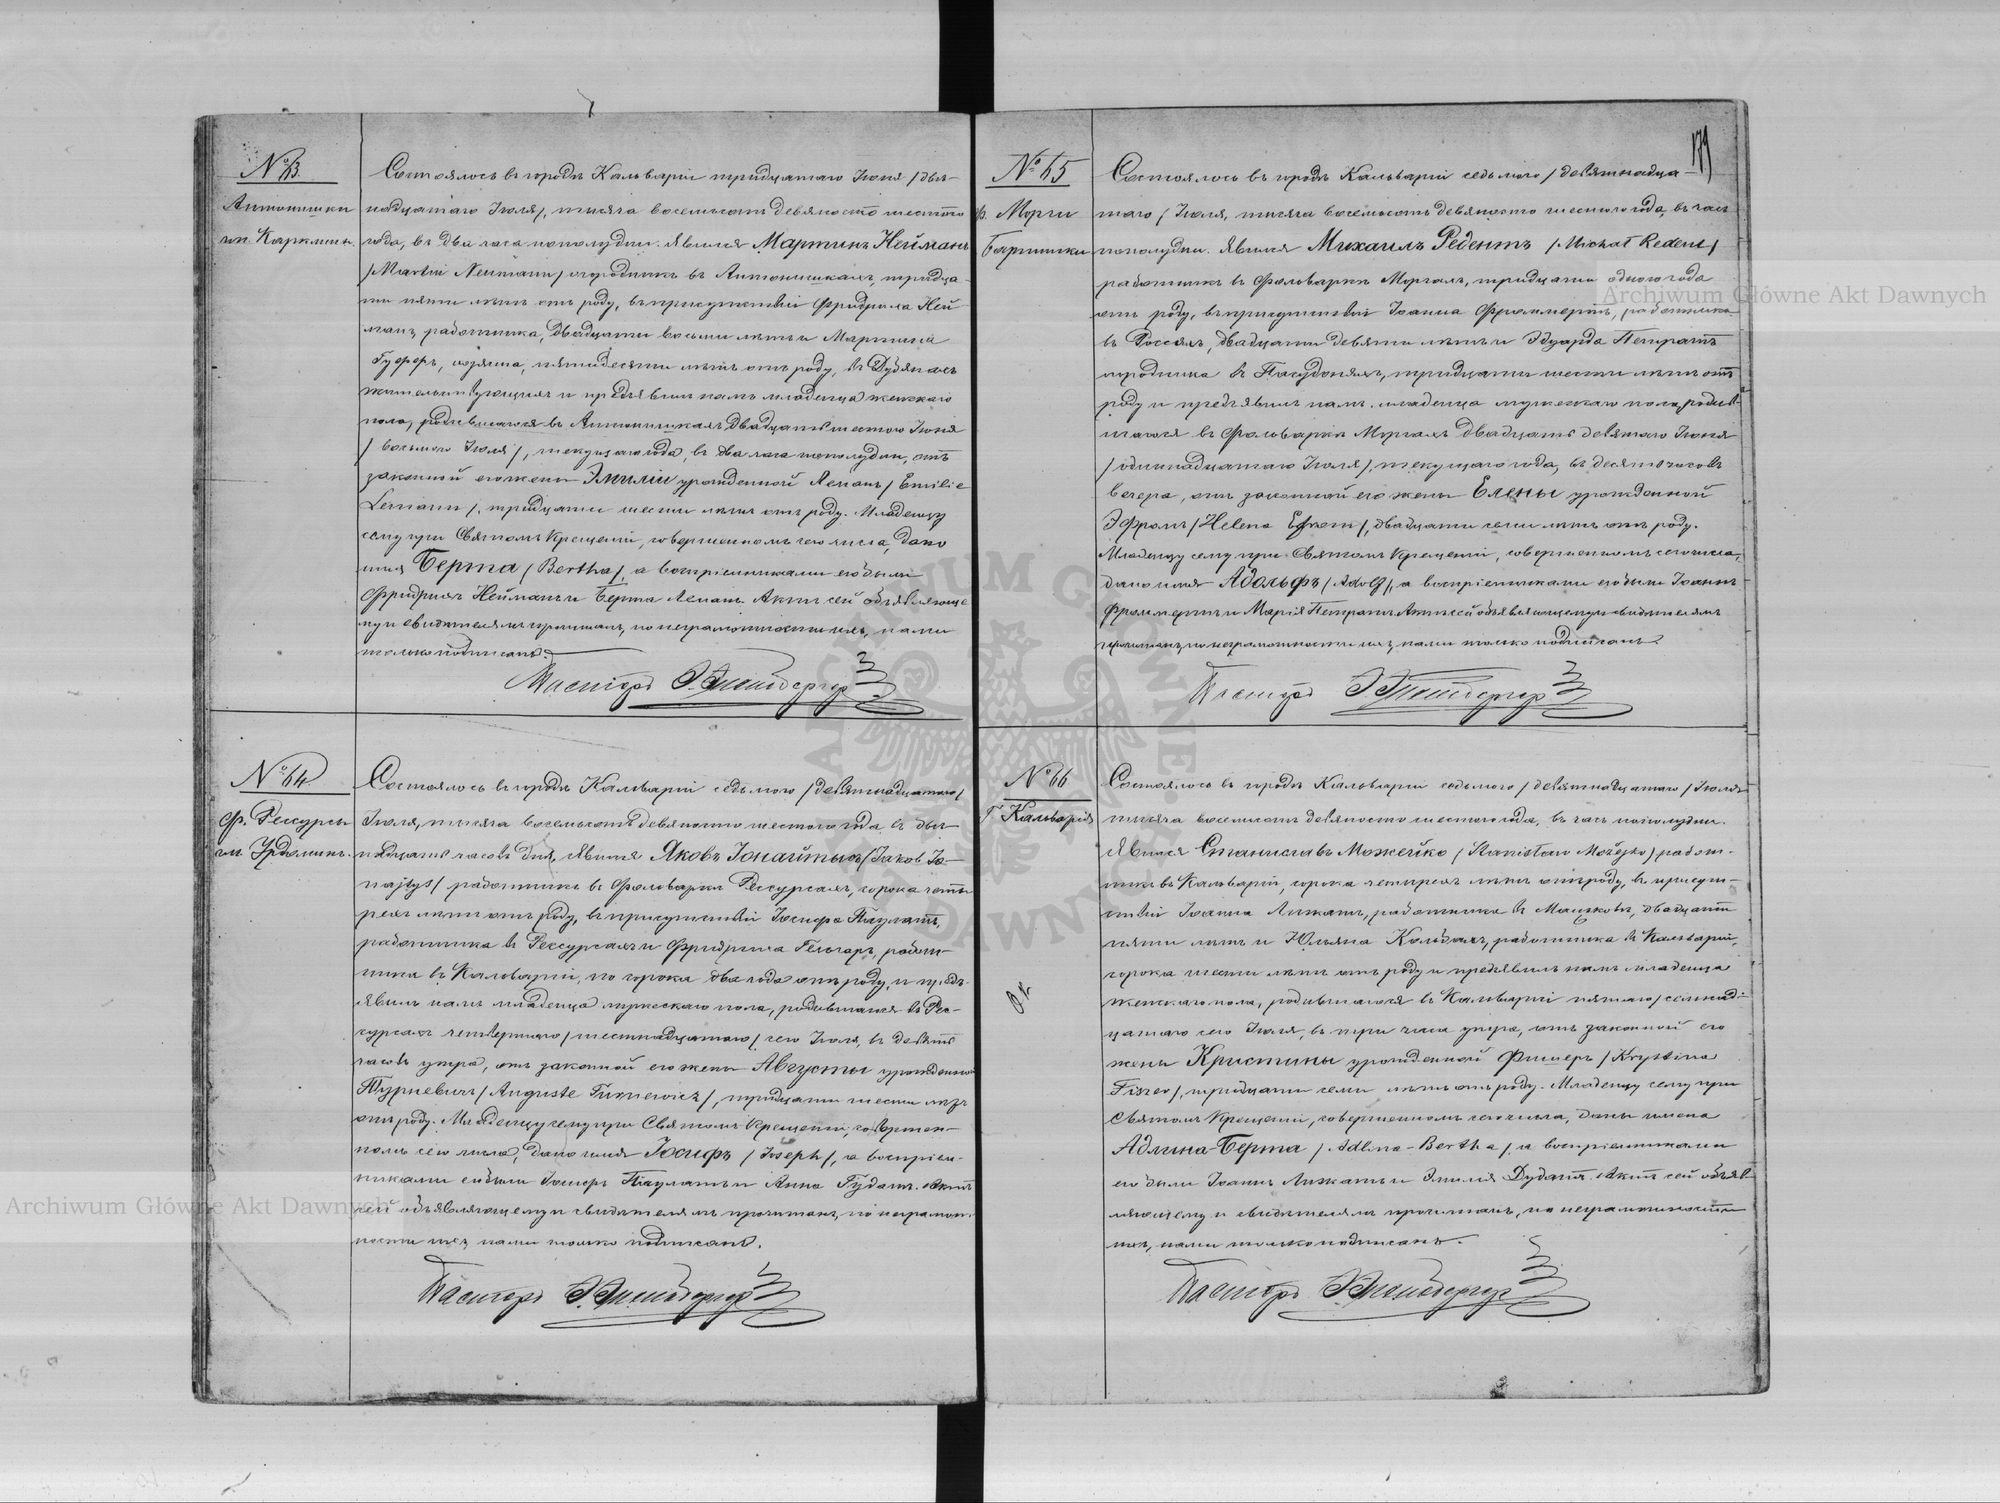 № 63.
Антонишки
гм. Кирклин.
Состоялось въ городѣ Кальваріи тридцатаго Іюня /двѣ-
надцатаго Іюля/, тысяча восемьсотъ девяносто шестого
года, въ два часа пополудни. Явился Мартинъ Нейманъ
/Martin Neumann/ огородникъ въ Антонишкахъ, тридца-
ти пяти лѣтъ отъ роду, въ присутствіи Фридриха Ней-
манъ, работника, двадцати восьми лѣтъ и Мартина
хозяина, пятидесяти лѣтъ отъ роду, въ
жительствующихъ и предъявилъ намъ младенца женскаго
пола, родившагося въ Антонишкахъ двадцать шестого Іюня
/восьмого Іюля/, текущаго года, въ два часа пополудни, отъ
законной его жены Эмиліи урожденной Леманъ /Emilie
Lemann/, тридцати шести лѣтъ отъ роду. Младенцу
сему при Святомъ Крещеніи, совершенномъ сего числа, дано
имя Берта /Bertha/, а воспріемниками его были
Фридрихъ Нейманъ и Берта Леманъ. Актъ сей объявляюще-
му и свидѣтелямъ прочитанъ, по неграмотности ихъ, нами
только подписанъ.
Пасторъ
№ 64.
ф. Рессурсы
гм. Урдомин.
Состоялось въ городѣ Кальваріи седьмого /девятнадцатаго/
Іюля, тысяча восемьсотъ девяносто шестого года въ двѣ-
надцать часовъ дня, явился Яковъ Іонайтысъ /Jakob Jo-
najtys/ работникъ въ Фольваркѣ Рессурсахъ, сорока четы-
рехъ лѣтъ отъ роду, въ присутствіи Іосифа Паулатъ,
работника въ Рессурсахъ и Фридриха работ-
ника въ Кальваріи, по сорока два года отъ роду, и предъ-
явилъ намъ младенца мужескаго пола, родившагося въ Рес-
сурсахъ четвертаго /шестнадцатаго/ сего Іюля, въ девять
часовъ утра, отъ законной его жены Августы урожденной
/Auguste
отъ роду. Младенцу сему при Святомъ Крещеніи, совершен-
номъ сего числа, дано имя Іосифъ /Joseph/, а воспріем-
никами его были Іосифъ Паулатъ и Анна Гудатъ. Актъ
сей объявляющему и свидѣтелямъ прочитанъ, по неграмот-
ности ихъ, нами только подписанъ.
Пасторъ
179
№ 65
ф. Морги
Бартники
Состоялось въ городѣ Кальваріи седьмого /девятнадца-
таго/ Іюля, тысяча восемьсотъ девяносто шестого года, въ часъ
пополудни. Явился Михаилъ Редентъ /Michał Redent/
работникъ въ Фольваркѣ Моргахъ, тридцати одного года
отъ роду, въ присутствіи Іоанна Фроммертъ, работника
въ двадцати девяти лѣтъ и Эдуарда Петратъ
огородника въ тридцати шести лѣтъ отъ
роду и предъявилъ намъ младенца мужескаго пола, родив-
шагося въ Фольваркѣ Моргахъ двадцать девятаго Іюня
/одиннадцатаго Іюля/, текущаго года, въ десять часовъ
вечера, отъ законной его жены Елены урожденной
Эфромъ /Helena Efrom/, двадцати семи лѣтъ отъ роду.
Младенцу сему при Святомъ Крещеніи, совершенномъ сего числа,
дано имя Адольфъ /Adolf/, а воспріемниками его были Іоаннъ
Фроммертъ и Марія Петратъ. Актъ сей объявляющему и свидѣтелямъ
прочитанъ, по неграмотности ихъ, нами только подписанъ.
Пасторъ
№ 66
Г. Кальварія
Состоялось въ городѣ Кальваріи седьмого /девятнадцатаго/ Іюля
тысяча восемьсотъ девяносто шестого года, въ часъ пополудни.
Явился Станиславъ Можейко /Stanisław Możejko/ работ-
никъ въ Кальваріи, сорока четырехъ лѣтъ отъ роду, въ присут-
ствіи Іоанна работника въ двадцати
пяти лѣтъ и Юльяна работника въ Кальваріи,
сорока шести лѣтъ отъ роду и предъявилъ намъ младенца
женскаго пола, родившагося въ Кальваріи пятаго /семнад-
цатаго сего Іюля, въ три часа утра, отъ законной его
жены Кристины урожденной Фишеръ /Krystina
Fiszer/, тридцати семи лѣтъ отъ роду. Младенцу сему при
Святомъ Крещеніи, совершенномъ сего числа, даны имена
Адлина-Берта /Adlina-Bertha/, а воспріемниками
его были Іоаннъ и Эмилія Дудатъ. Актъ сей объяв-
ляющему и свидѣтелямъ прочитанъ, по неграмотности
ихъ, нами только подписанъ.
Пасторъ
Archiwum Główne Akt Dawnych
Archiwum Główne Akt Dawnych
ARCHIWUM GŁÓWNE AKT DAWNYCH